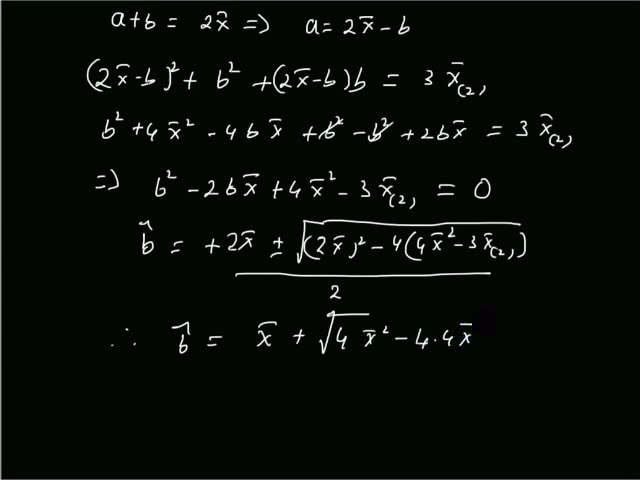 a+b = 2x̄ => a = 2x̄ - b
(2x̄-b)² + b² + (2x̄-b)b = 3 x̄₍₂₎
b² + 4x̄² - 4bx̄ + b² - b² + 2bx̄ = 3 x̄₍₂₎
=> b² - 2bx̄ + 4x̄² - 3x̄₍₂₎ = 0
b̂ = +2x̄ ± √((2x̄)² - 4(4x̄² - 3x̄₍₂₎))
2
∴ b̂ = x̄ + √4 x̄² - 4·4x̄